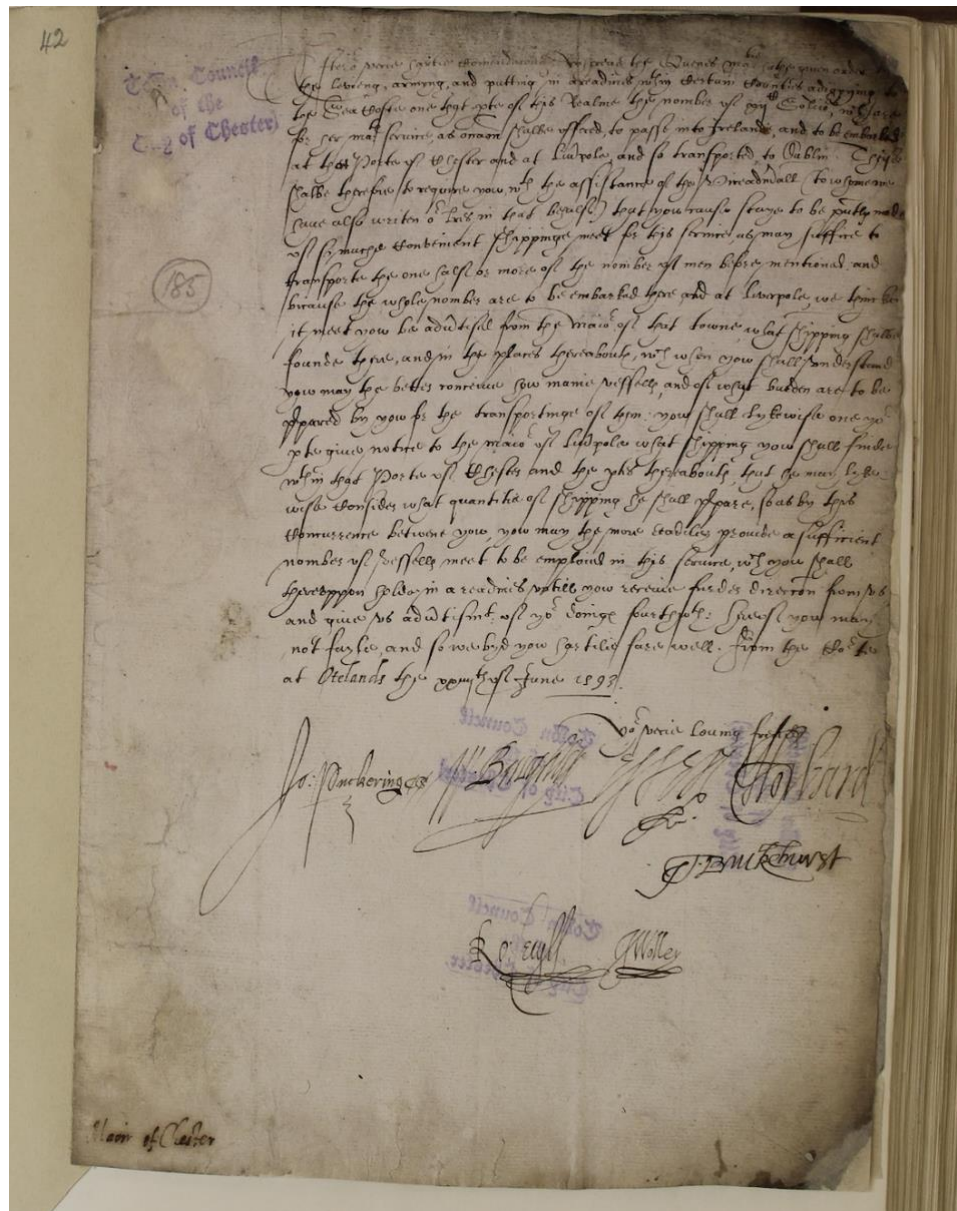 42
Town Council
of the
City of Chester
After o verie hartie comendacons. Whereas the Quenes matie hathe given order
the levieng, arming, and putting in areadines wthin certain Counties adioyning to
the Sea Coste one that pte of this Realme the nomber of
for her mats service, as occasion shalbe offred, to passe into Ireland, and to be embarked
at that Porte of Chester and at Liverpole, and so transported to Dublin. Theis
shalbe therefore to require yow wth the assistance of to whome we
have also writen or lres in that behalfe that yow cause staye to be pntly made
of so muche convenient shippinge meet for this service, as may suffice to
transporte the one half or more of the nomber of men before mentioned, and
bicause the whole nomber are to be embarked there and at Liverpole, we thincke
it meet yow be advertised from the Maior of that towne what shipping shalbe
founde there, and in the places thereabouth, wch when yow shall understand
yow may the better conceive how manie vessells, and of what burden are to be
ppared by yow for the transportinge of them: yow shall lykewise one yor
pte give notice to the maior of Liverpole what shipping yow shall finde
wthin that Porte of Chester and the ptes thereabouth, that he may lyke
wise consider what quantitie of shipping he shall ppare, so as by this
concurrence betwene yow, yow may the more readilie provide a sufficient
nomber of vessells meet to be emploied in this service, wch yow shall
thereuppon holde in a readines untill yow receive further direccon from us
and give us advertisemt of yor doinge fourthwth: hereof yow may
not fayle, and so we byd yow hartilie fare well. From the Corte
at Otelands the of June 1593.
185
yor verie loving frends
Jo: Puckering CS W Burghley Howard
T. Buckehurst
Ro: Cecyll J Wolley
Maior of Chester